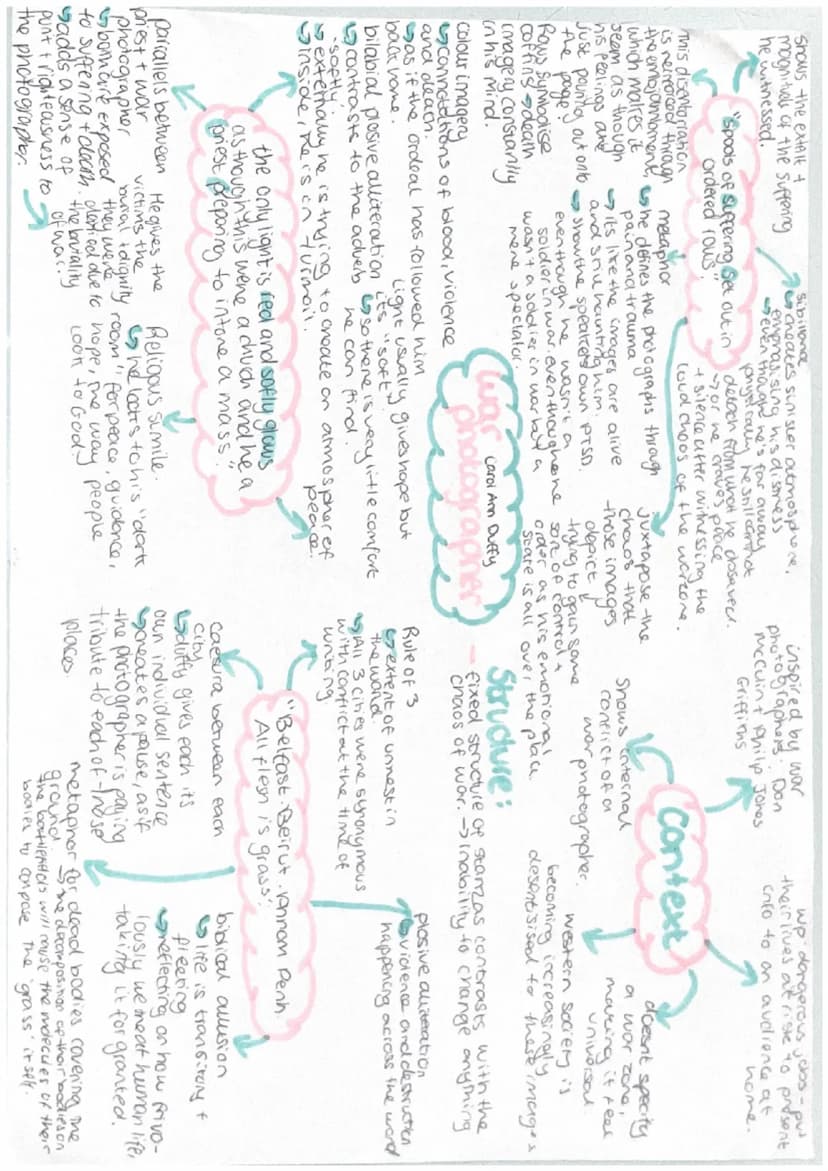 war
photographer
Carol Ann Duffy
"Spools of suffering set out in
ordered rows"
shows the extent +
magnitude of the suffering
he witnessed.
this disentortation
is reinforced through
the enjambment
which makes it
seem as though
his feelings are
just pouring out onto
the page!
Rows symbolise
coffins → death
imagery constantly
in his mind.
metaphor
he defines the photographs through
pain and trauma
its like the images are alive
and still haunting him.
show the speakers own PTSD.
eventhough he wasn't a
soldier in war. eventhough he
wasn't a soldier in war but a
mere spectator.
sibilance
creates sinister atmosphere.
emphasising his distress
even though he's far away
physically he still cannot
detach from what he observed.
→ or he craves peace
+ silence after witnessing the
loud chaos of the warzone.
juxtapose the
chaos that
these images
depict
trying to gain some
sort of control +
order as his emotional
state is all over the place.
colour imagery
connotations of blood, violence
and death.
as if the ordeal has followed him
back home.
bilabial plosive alliteration
contrasts to the adverb
"softly".
externally he is trying to create an atmospher of
peace.
inside, he is in turmoil.
light usually gives hope but
its "soft"
so there is very little comfort
he can find.
the only light is red and softly glows
as though this were a church and he a
priest preparing to intone a mass."
parallels between
priest + war
photographer
both are exposed
to suffering + death.
adds a sense of
purity + righteousness to
the photographer.
He gives the
victims the
burial + dignity
they were
denied due to
the brutality
of war.
Religous simile.
he looks to his "dark
room" for peace, guidence,
hope, the way people
look to God
Context
inspired by war
photographers: Don
McCullin + Philip Jones
Griffiths
WP dangerous jobs - put
their lives at risk to present
info to an audience at
home.
shows internal
conflict of a
war photographer.
western society is
becoming increasingly
desensitised to these images
doesnt specify
a war zone,
making it feel
universal.
Structure:
- fixed structure of stanzas contrasts with the
chaos of war. → inability to change anything
"Belfast. Beirut. Phnom Penh.
All flesh is grass."
Rule of 3
extent of unrest in
the world.
All 3 cities were synonymous
with conflict at the time of
writing.
plosive alliteration
violence and destruction
happening across the word
caesura between each
city
duffy gives each its
own individual sentence
creates a pause, as if
the photographer is paying
tribute to each of these
places
biblical allusion
life is transitory +
fleeting
reflecting on how frivo-
lously we treat human life,
taking it for granted.
metaphor for dead bodies covering the
ground
→ the decomposition of their bodies on
the battlefields will cause the molecules of their
bodies to compose the 'grass' itself.